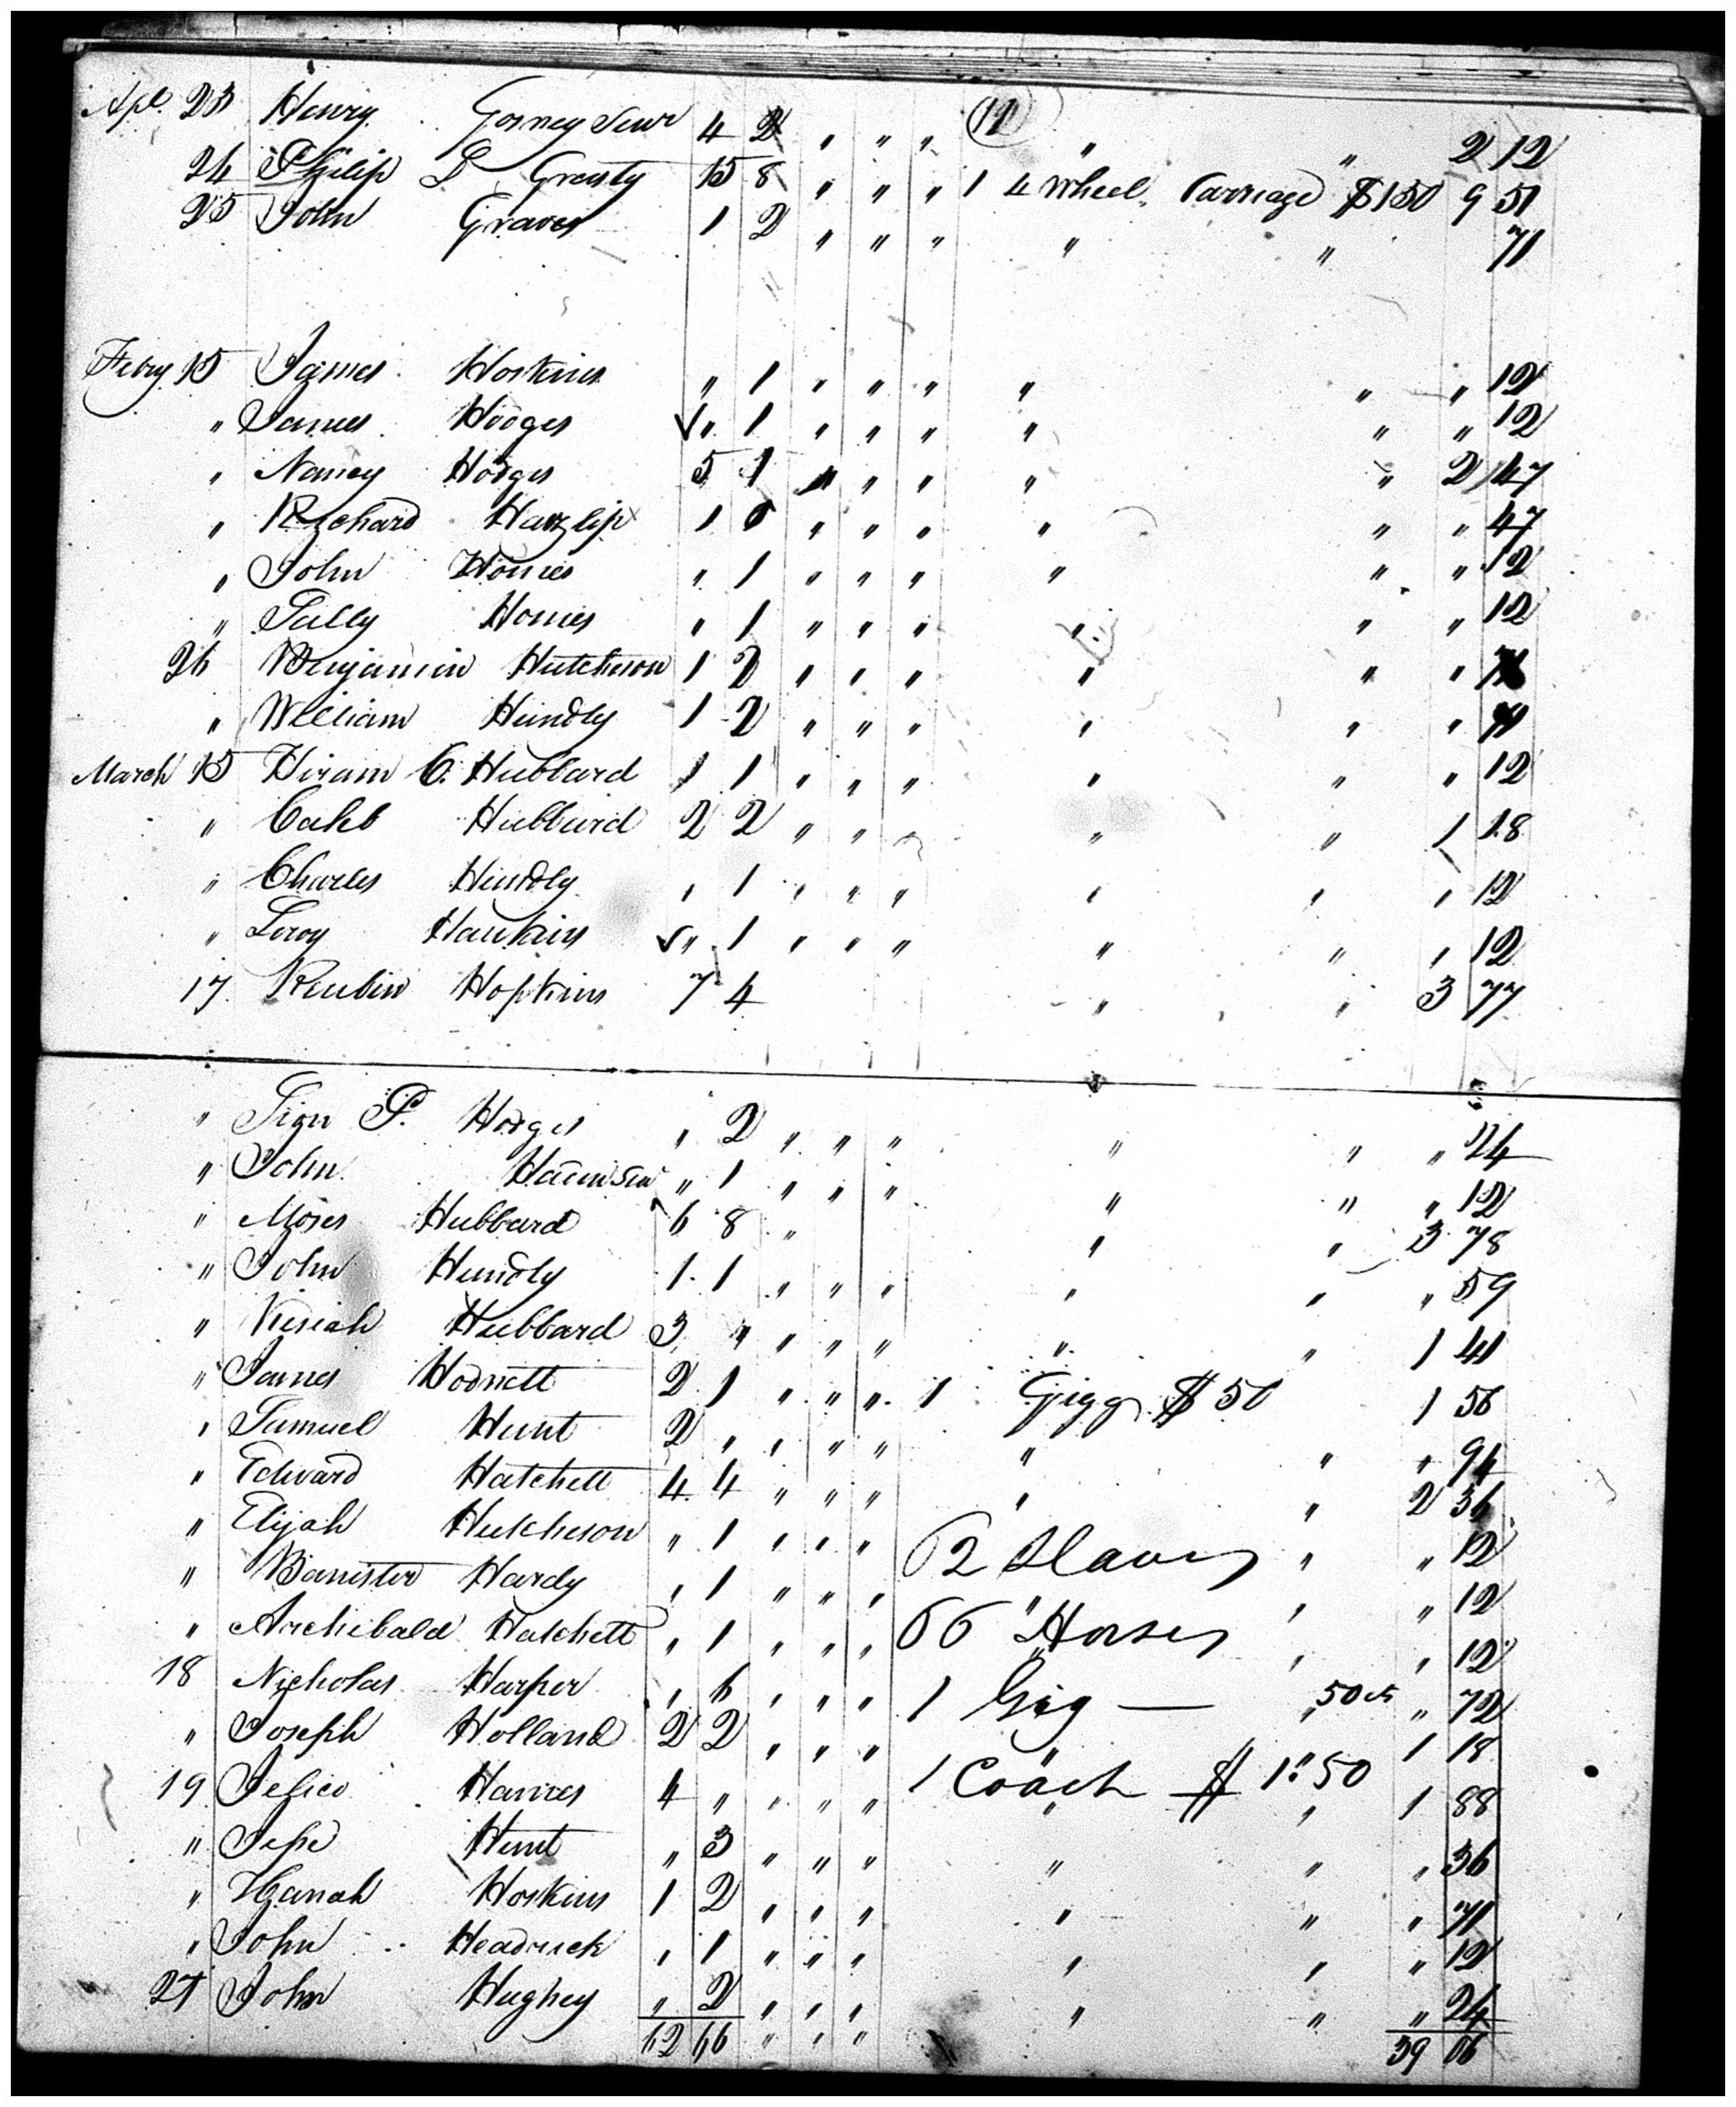 (12)
Apl. 23 Henry Gosney Senr 4 2 " " " " " 2 12
24 Philip L Grasty 15 8 " " " 1 4 Wheel Carriage $150 9 51
25 John Graves 1 2 " " " " " 71
Febry 15 James Hoskins " 1 " " " " " " 12
" James Hodges √" 1 " " " " " " 12
" Nancy Hodges 5 1 " " " " " 2 47
" Richard Haizlip 1 0 " " " " " " 47
" John Homes " 1 " " " " " " 12
" Sally Homes " 1 " " " " " " 12
26 Benjamin Hutcheson 1 2 " " " " " " 71
" William Hundly 1 2 " " " " " " 71
March 15 Hiram C. Hubbard 1 1 " " " " " " 12
" Caleb Hubbard 2 2 " " " " " 1 18
" Charles Hundly " 1 " " " " " " 12
" Leroy Hawkins √" 1 " " " " " " 12
17 Reubin Hopkins 7 4 " " 3 77
" P. Hodges " 2 " " " " " " 24
" John " 1 " " " " " " 12
" Moses Hubbard 6 8 " " " 3 78
" John Hundly 1 1 " " " " " " 59
" Kesiah Hubbard 3 " " " " " " 1 41
" James Hodnett 2 1 " " " 1 Gigg $50 1 56
" Samuel Hunt 2 " " " " " " " 94
" Edward Hatchett 4 4 " " " " " 2 36
" Elijah Hutcheson " 1 " " " 62 Slaves " " 12
" Banister Hardy " 1 " " " " " " 12
" Archibald Hatchett " 1 " " " 66 Horses " " 12
18 Nicholas Harper " 6 " " " 1 Gig — 50 cts " 72
" Joseph Holland 2 2 " " " " 1 18
19 Haires 4 " " " " 1 Coach $1.50 " 1 88
" Jesse Hunt " 3 " " " " " " 36
" Hanah Hoskins 1 2 " " " " " " 71
" John Headrick " 1 " " " " " " 12
27 John Hughey " 2 " " " " " " 24
62 66 " " " 39 06